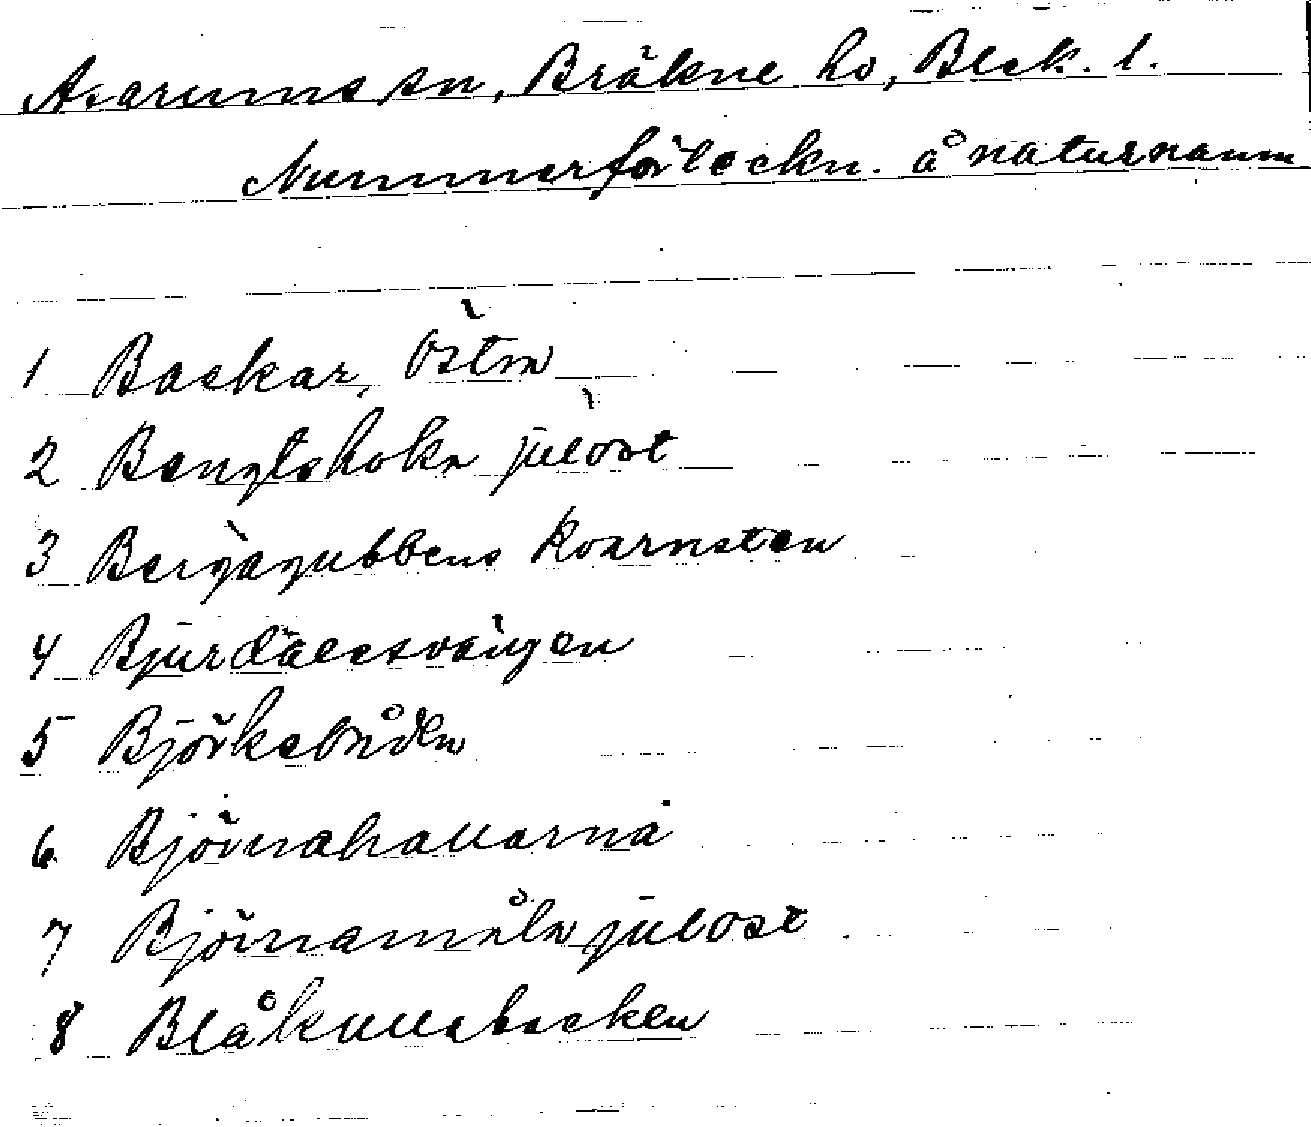 Asarums sn, Bräkne hd, Blek. l.
Nummerförteckn. å naturnamn
1 Backar, Östra
2 Bengtshoka julost
3 Bergagubbens kvarnsten
4 Bjurdalesvängen
5 Björkebråden
6 Björnahallarna
7 Björnamåla julost
8 Blåkullabacken